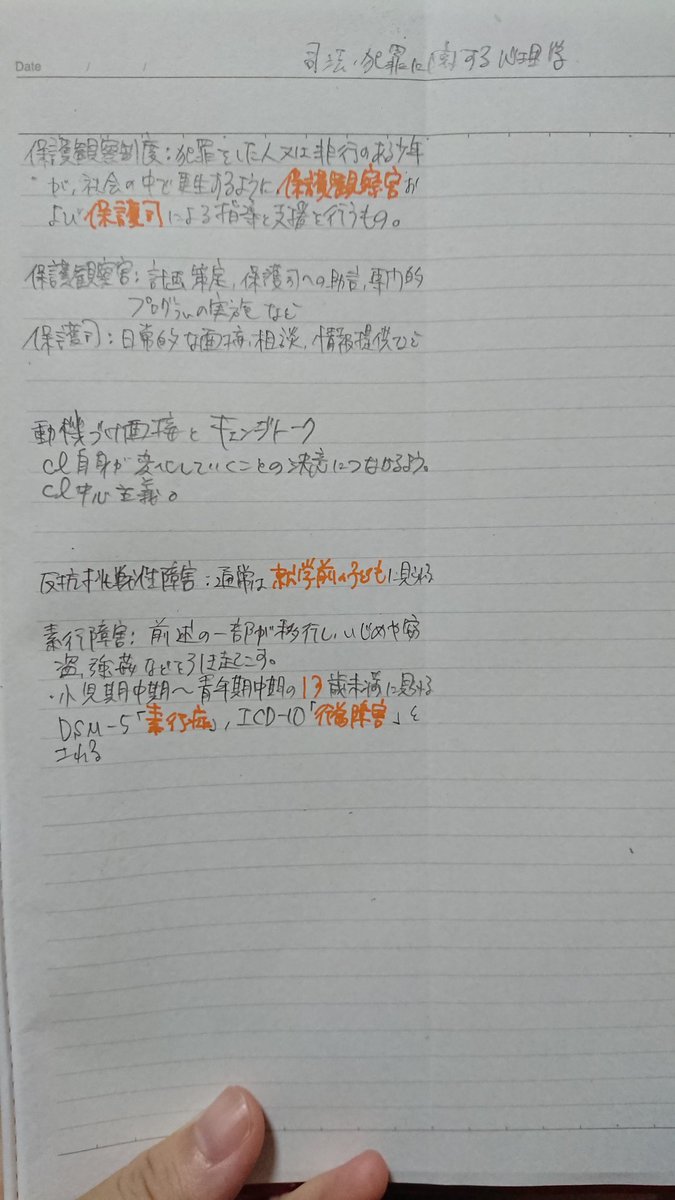 Date / /
司法・犯罪に関する心理学
保護観察制度:犯罪をした人又は非行のある少年
が、社会の中で更生するように保護観察官お
よび保護司による指導と支援を行うもの。
保護観察官:計画策定、保護司への助言、専門的
プログラムの実施など
保護司:日常的な面接、相談、情報提供など
動機づけ面接とチェンジトーク
Cl自身が変化していくことの決意につなげるよう。
Cl中心主義。
反抗挑戦性障害:通常は就学前の子どもに見られる
素行障害:前述の一部が移行し、いじめや窃
盗、強姦などを引き起こす。
・小児期中期〜青年期中期の13歳未満に見られる
DSM-5「素行症」、ICD-10「行為障害」と
される